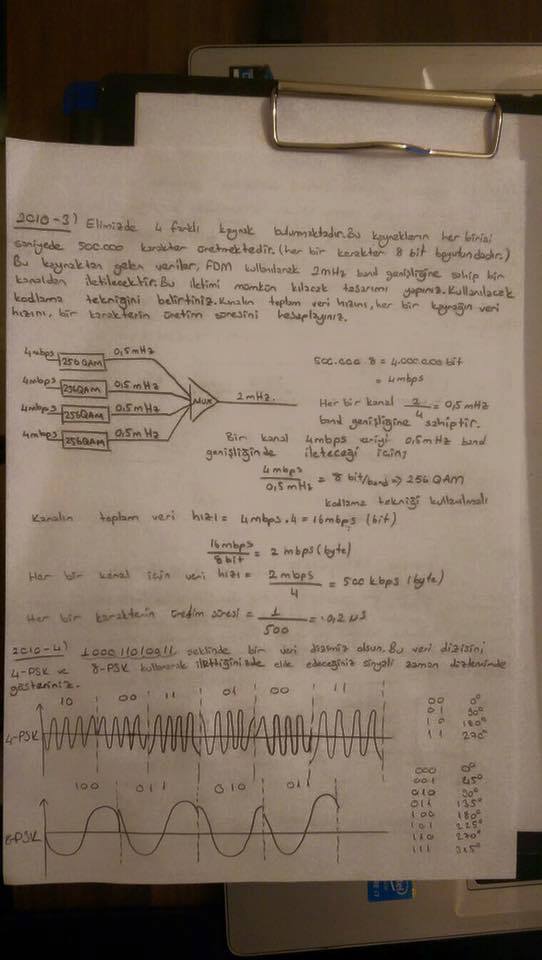 2010-3) Elimizde 4 farklı kaynak bulunmaktadır. Bu kaynakların her birisi
saniyede 500.000 karakter üretmektedir. (her bir karakter 8 bit boyutundadır.)
Bu kaynaktan gelen veriler, FDM kullanılarak 2mHz band genişliğine sahip bir
kanaldan iletilecektir. Bu iletimi mümkün kılacak tasarımı yapınız. Kullanılacak
kodlama tekniğini belirtiniz. Kanalın toplam veri hızını, her bir kaynağın veri
hızını, bir karakterin üretim süresini hesaplayınız.
4mbps 256QAM 0,5mHz
4mbps 256QAM 0,5mHz
4mbps 256QAM 0,5mHz
4mbps 256QAM 0,5mHz
MUX 2mHz.
500.000 8 = 4.000.000 bit
= 4mbps
Her bir kanal 2/4 = 0,5mHz
band genişliğine sahiptir.
Bir kanal 4mbps veriyi 0,5mHz band
genişliğinde ileteceği için;
4mbps/0,5mHz = 8 bit/band => 256QAM
kodlama tekniği kullanılmalı
Kanalın toplam veri hızı = 4mbps.4 = 16mbps (bit)
16mbps/8bit = 2mbps (byte)
Her bir kanal için veri hızı = 2mbps/4 = 500kbps (byte)
Her bir karakterin üretim süresi = 1/500 = 0,2 µs
2010-4) 100011010011 şeklinde bir veri dizimiz olsun. Bu veri dizisini
4-PSK ve 8-PSK kullanarak ilettiğinizde elde edeceğiniz sinyali zaman düzleminde
gösteriniz.
10 00 11 01 00 11
4-PSK
00 0°
01 90°
10 180°
11 270°
100 011 010 011
8-PSK
000 0°
001 45°
010 90°
011 135°
100 180°
101 225°
110 270°
111 315°
intel